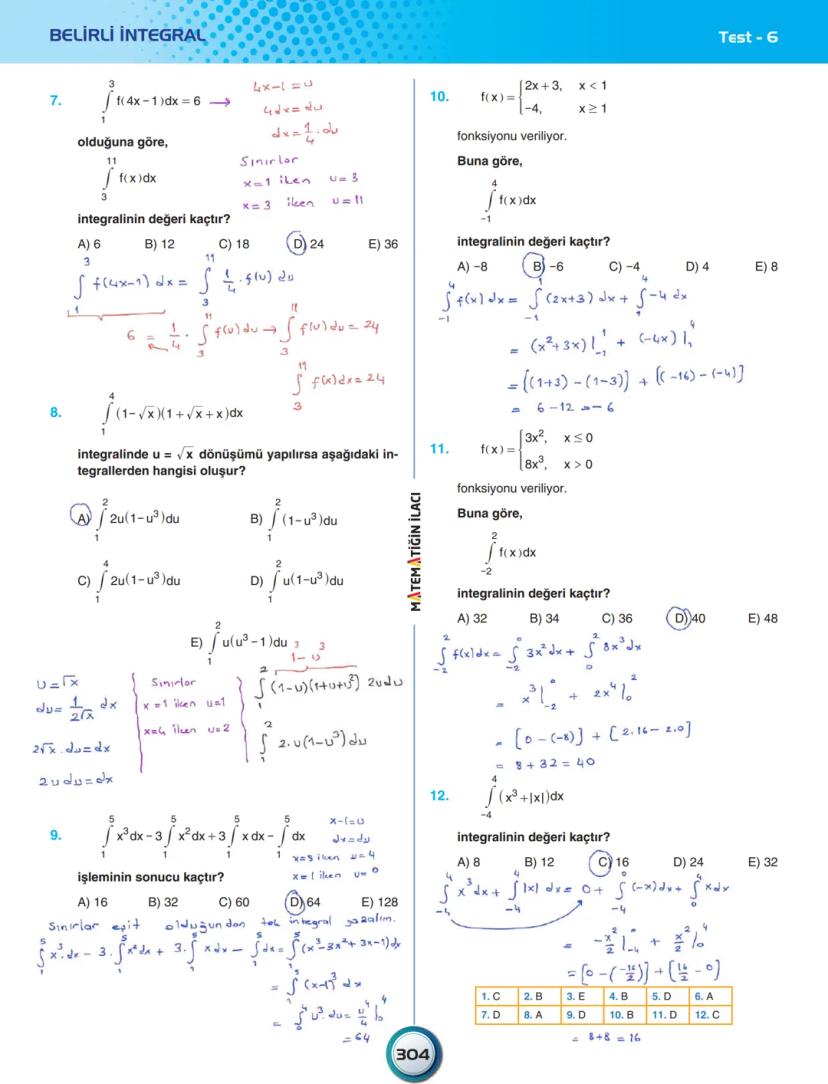 BELİRLİ İNTEGRAL
Test - 6
7. ∫₁³ f(4x−1)dx = 6 →
4x−1 = u
4dx = du
dx = 1/4 · du
olduğuna göre,
∫₃¹¹ f(x)dx
Sınırlar
x=1 iken u=3
x=3 iken u=11
integralinin değeri kaçtır?
A) 6 B) 12 C) 18 D) 24 E) 36
∫₁³ f(4x−1) dx = ∫₃¹¹ 1/4 · f(u) du
6 = 1/4 · ∫₃¹¹ f(u) du → ∫₃¹¹ f(u) du = 24
∫₃¹¹ f(x)dx = 24
8. ∫₁⁴ (1−√x)(1+√x+x)dx
integralinde u = √x dönüşümü yapılırsa aşağıdaki in-
tegrallerden hangisi oluşur?
A) ∫₁² 2u(1−u³)du B) ∫₁² (1−u³)du
C) ∫₁⁴ 2u(1−u³)du D) ∫₁² u(1−u³)du
E) ∫₁² u(u³−1)du
1³ − u³
u=√x
du = 1/(2√x) dx
2√x . du = dx
2u du = dx
Sınırlar
x=1 iken u=1
x=4 iken u=2
∫₁² (1−u)(1+u+u²) 2udu
∫₁² 2.u(1−u³) du
9. ∫₁⁵ x³dx − 3∫₁⁵ x²dx + 3∫₁⁵ x dx − ∫₁⁵ dx
x−1=u
dx=du
x=5 iken u=4
x=1 iken u=0
işleminin sonucu kaçtır?
A) 16 B) 32 C) 60 D) 64 E) 128
Sınırlar eşit olduğundan tek integral yazalım.
∫₁⁵ x³.dx − 3.∫₁⁵ x²dx + 3.∫₁⁵ xdx − ∫₁⁵ dx = ∫₁⁵ (x³−3x²+3x−1)dx
= ∫₁⁵ (x−1)³ dx
= ∫₀⁴ u³.du = u⁴/4 |₀⁴
= 64
MATEMATİĞİN İLACI
10. f(x) = { 2x+3, x < 1
−4, x ≥ 1
fonksiyonu veriliyor.
Buna göre,
∫₋₁⁴ f(x)dx
integralinin değeri kaçtır?
A) −8 B) −6 C) −4 D) 4 E) 8
∫₋₁⁴ f(x)dx = ∫₋₁¹ (2x+3)dx + ∫₁⁴ −4 dx
= (x²+3x)|₋₁¹ + (−4x)|₁⁴
= [(1+3) − (1−3)] + [(−16) − (−4)]
= 6 −12 = −6
11. f(x) = { 3x², x ≤ 0
8x³, x > 0
fonksiyonu veriliyor.
Buna göre,
∫₋₂² f(x)dx
integralinin değeri kaçtır?
A) 32 B) 34 C) 36 D) 40 E) 48
∫₋₂² f(x)dx = ∫₋₂⁰ 3x²dx + ∫₀² 8x³dx
= x³|₋₂⁰ + 2x⁴|₀²
= [0 − (−8)] + [2.16 − 2.0]
= 8+32 = 40
12. ∫₋₄⁴ (x³+|x|)dx
integralinin değeri kaçtır?
A) 8 B) 12 C) 16 D) 24 E) 32
∫₋₄⁴ x³dx + ∫₋₄⁴ |x| dx = 0 + ∫₋₄⁰ (−x)dx + ∫₀⁴ xdx
= −x²/2 |₋₄⁰ + x²/2 |₀⁴
= [0 − (−16/2)] + [16/2 − 0]
1. C 2. B 3. E 4. B 5. D 6. A
7. D 8. A 9. D 10. B 11. D 12. C
= 8+8 = 16
304